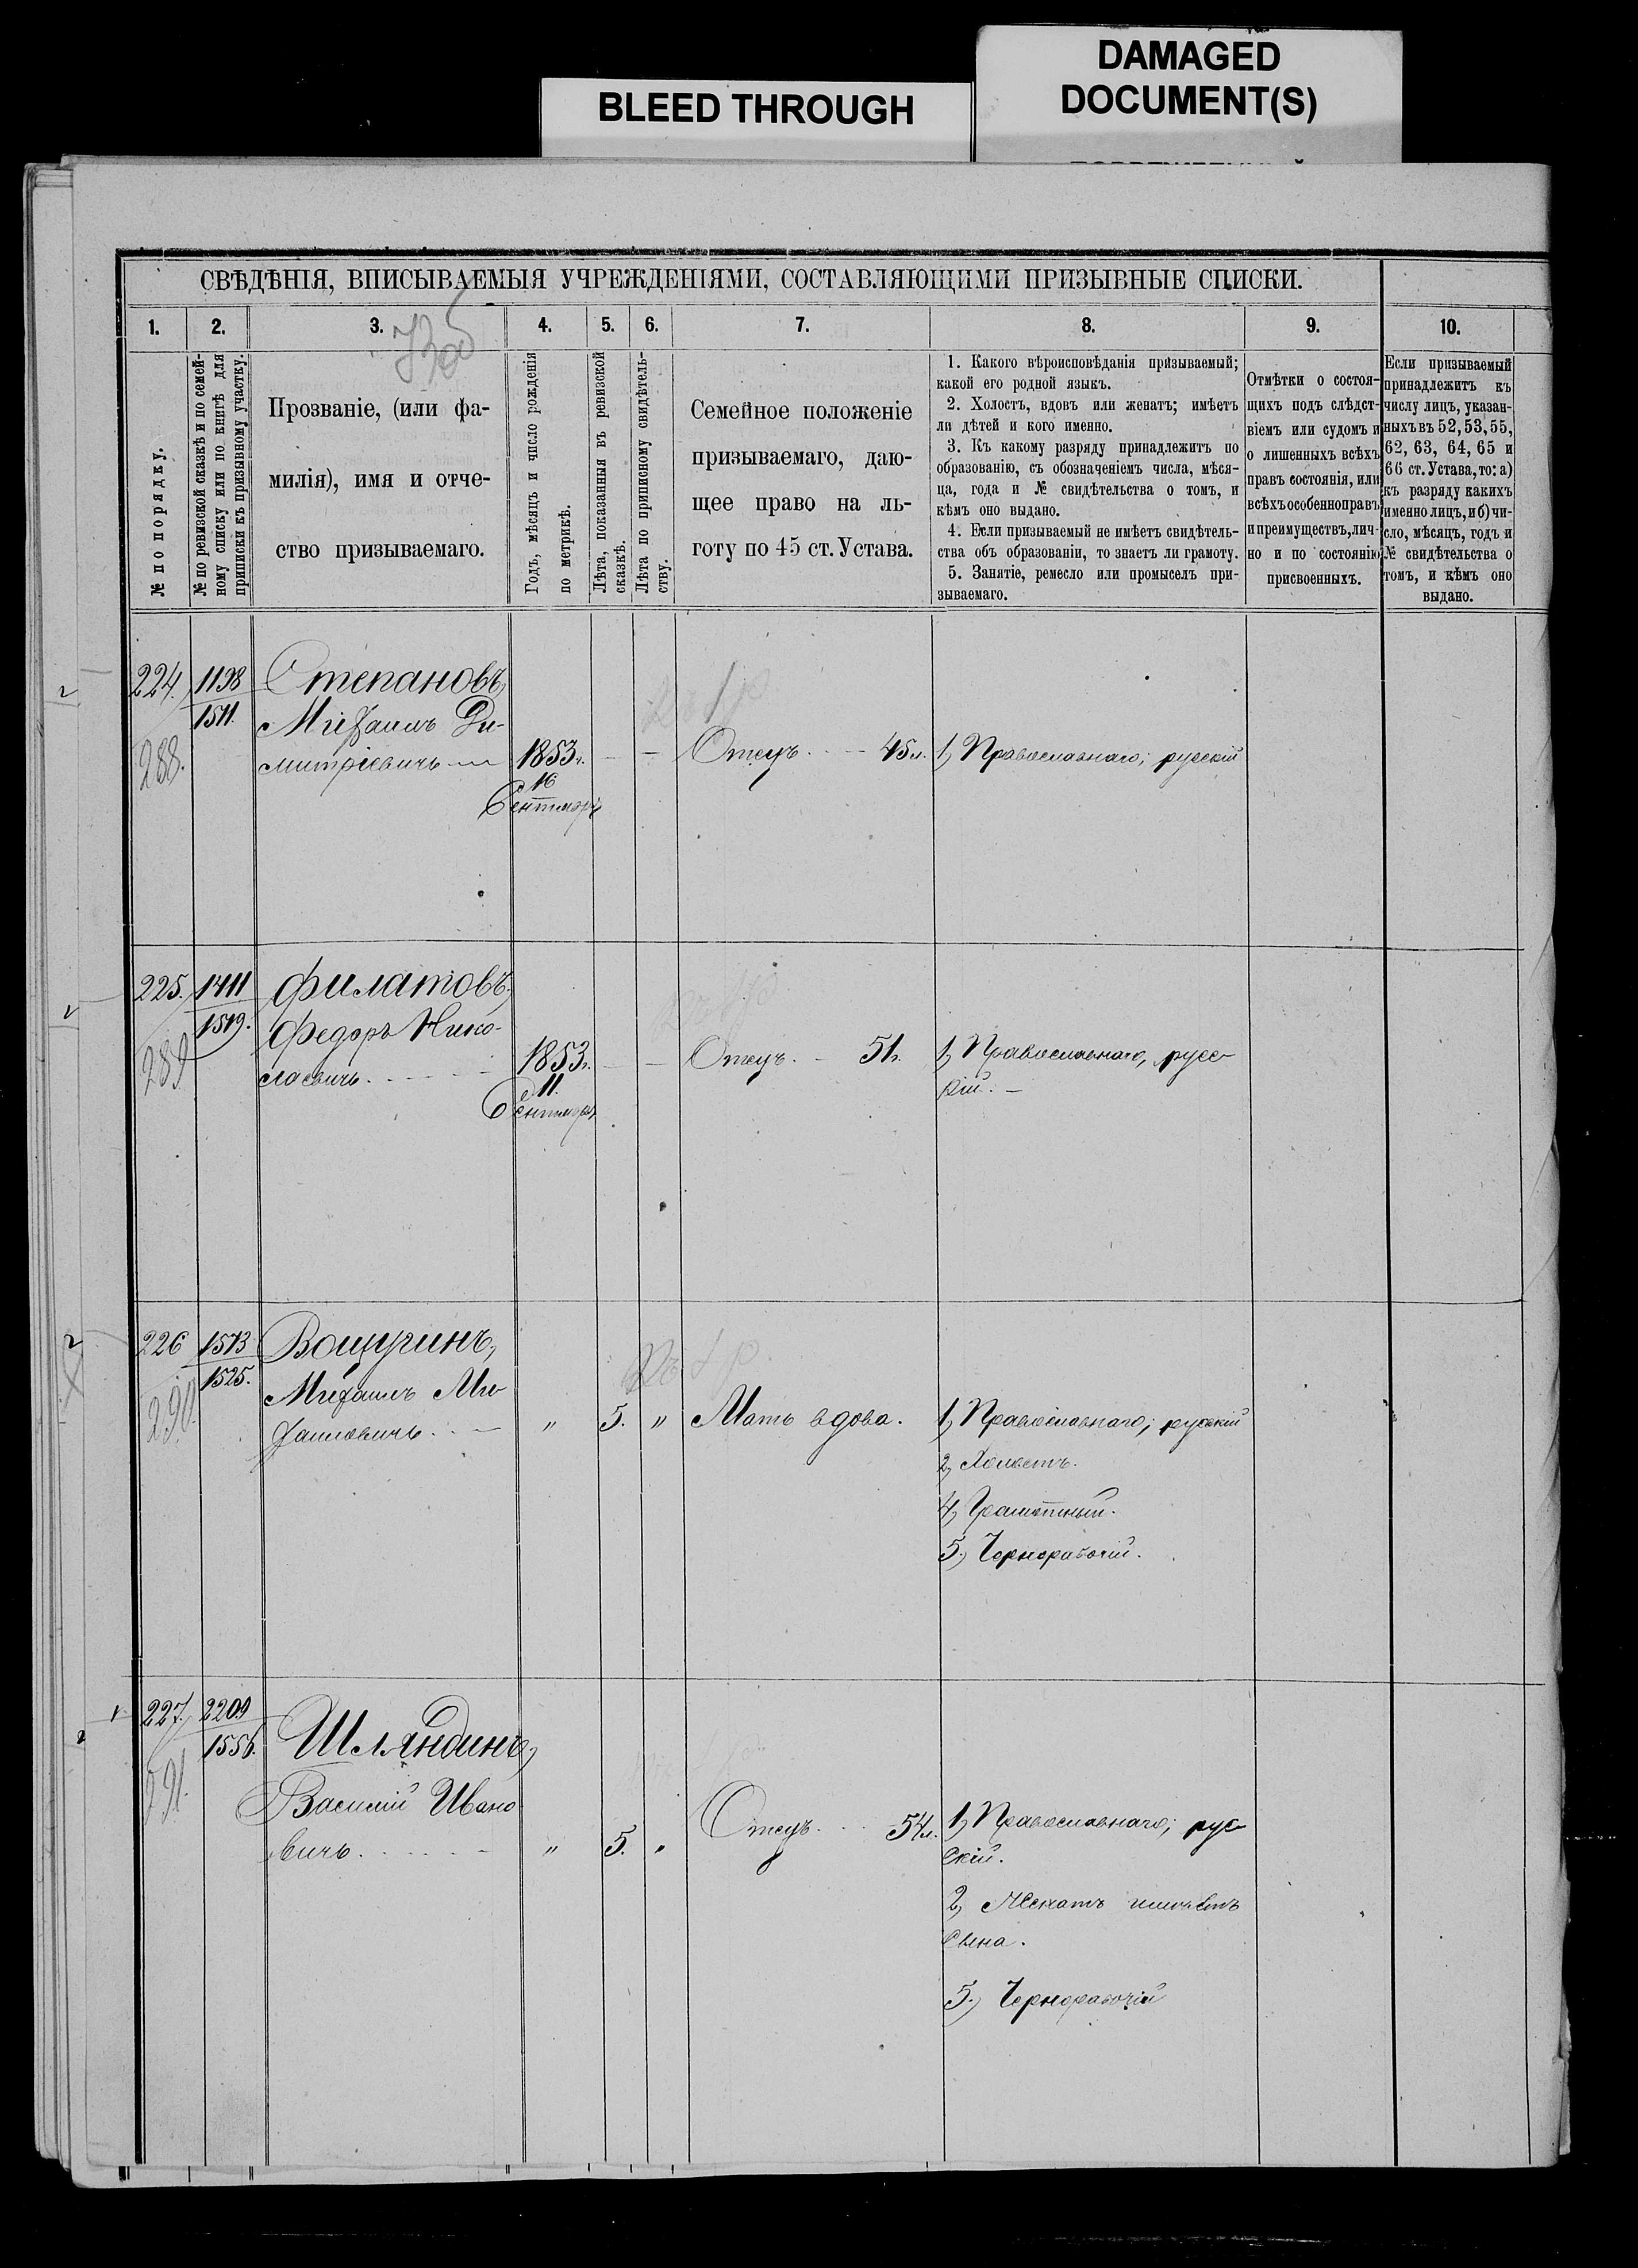 BLEED THROUGH
DAMAGED
DOCUMENT(S)
СВѢДѢНІЯ, ВПИСЫВАЕМЫЯ УЧРЕЖДЕНІЯМИ, СОСТАВЛЯЮЩИМИ ПРИЗЫВНЫЕ СПИСКИ.
1. 2. 3. 4. 5. 6. 7. 8. 9. 10.
№ по порядку.
№ по ревизской сказкѣ и по семей-
ному списку или по книгѣ для
приписки къ призывному участку.
Прозваніе, (или фа-
милія), имя и отче-
ство призываемаго.
Годъ, мѣсяцъ и число рожденія
по метрикѣ.
Лѣта, показанныя въ ревизской
сказкѣ.
Лѣта по приписному свидѣтель-
ству.
Семейное положеніе
призываемаго, даю-
щее право на ль-
готу по 45 ст. Устава.
1. Какого вѣроисповѣданія призываемый;
какой его родной языкъ.
2. Холостъ, вдовъ или женатъ; имѣетъ
ли дѣтей и кого именно.
3. Къ какому разряду принадлежитъ по
образованію, съ обозначеніемъ числа, мѣся-
ца, года и № свидѣтельства о томъ, и
кѣмъ оно выдано.
4. Если призываемый не имѣетъ свидѣтель-
ства объ образованіи, то знаетъ ли грамоту.
5. Занятіе, ремесло или промыселъ при-
зываемаго.
Отмѣтки о состоя-
щихъ подъ слѣдст-
віемъ или судомъ и
о лишенныхъ всѣхъ
правъ состоянія, или
всѣхъ особенно правъ
и преимуществъ, лич-
но и по состоянію
присвоенныхъ.
Если призываемый
принадлежитъ къ
числу лицъ, указан-
ныхъ въ 52, 53, 55,
62, 63, 64, 65 и
66 ст. Устава, то: а)
къ разряду какихъ
именно лицъ, и б) чи-
сло, мѣсяцъ, годъ и
№ свидѣтельства о
томъ, и кѣмъ оно
выдано.
224. 1198 Степановъ,
1511. Михаилъ Ди-
288. митріевичъ 1853 г. — — Отецъ 45 л. 1, Православнаго; русскій
16
Сентября
225. 1411 Филатовъ,
1519. Федоръ Нико-
289 лаевичъ 1853 г. — — Отецъ. 51 г. 1, Православнаго, русс-
11. кій. —
Сентября
226 1573 Вощугинъ,
1525. Михаилъ Ми-
290. хаиловичъ. „ 5. „ Мать вдова. 1, Православнаго; русскій
2, Холостъ.
4, Грамотный.
5, Чернорабочій.
227. 2209
1556. Шляндинъ,
291. Василій Ивано
вичъ „ 5. „ Отецъ 54 л. 1, Православнаго; рус-
скій.
2, Женатъ имѣетъ
сына.
5, Чернорабочій